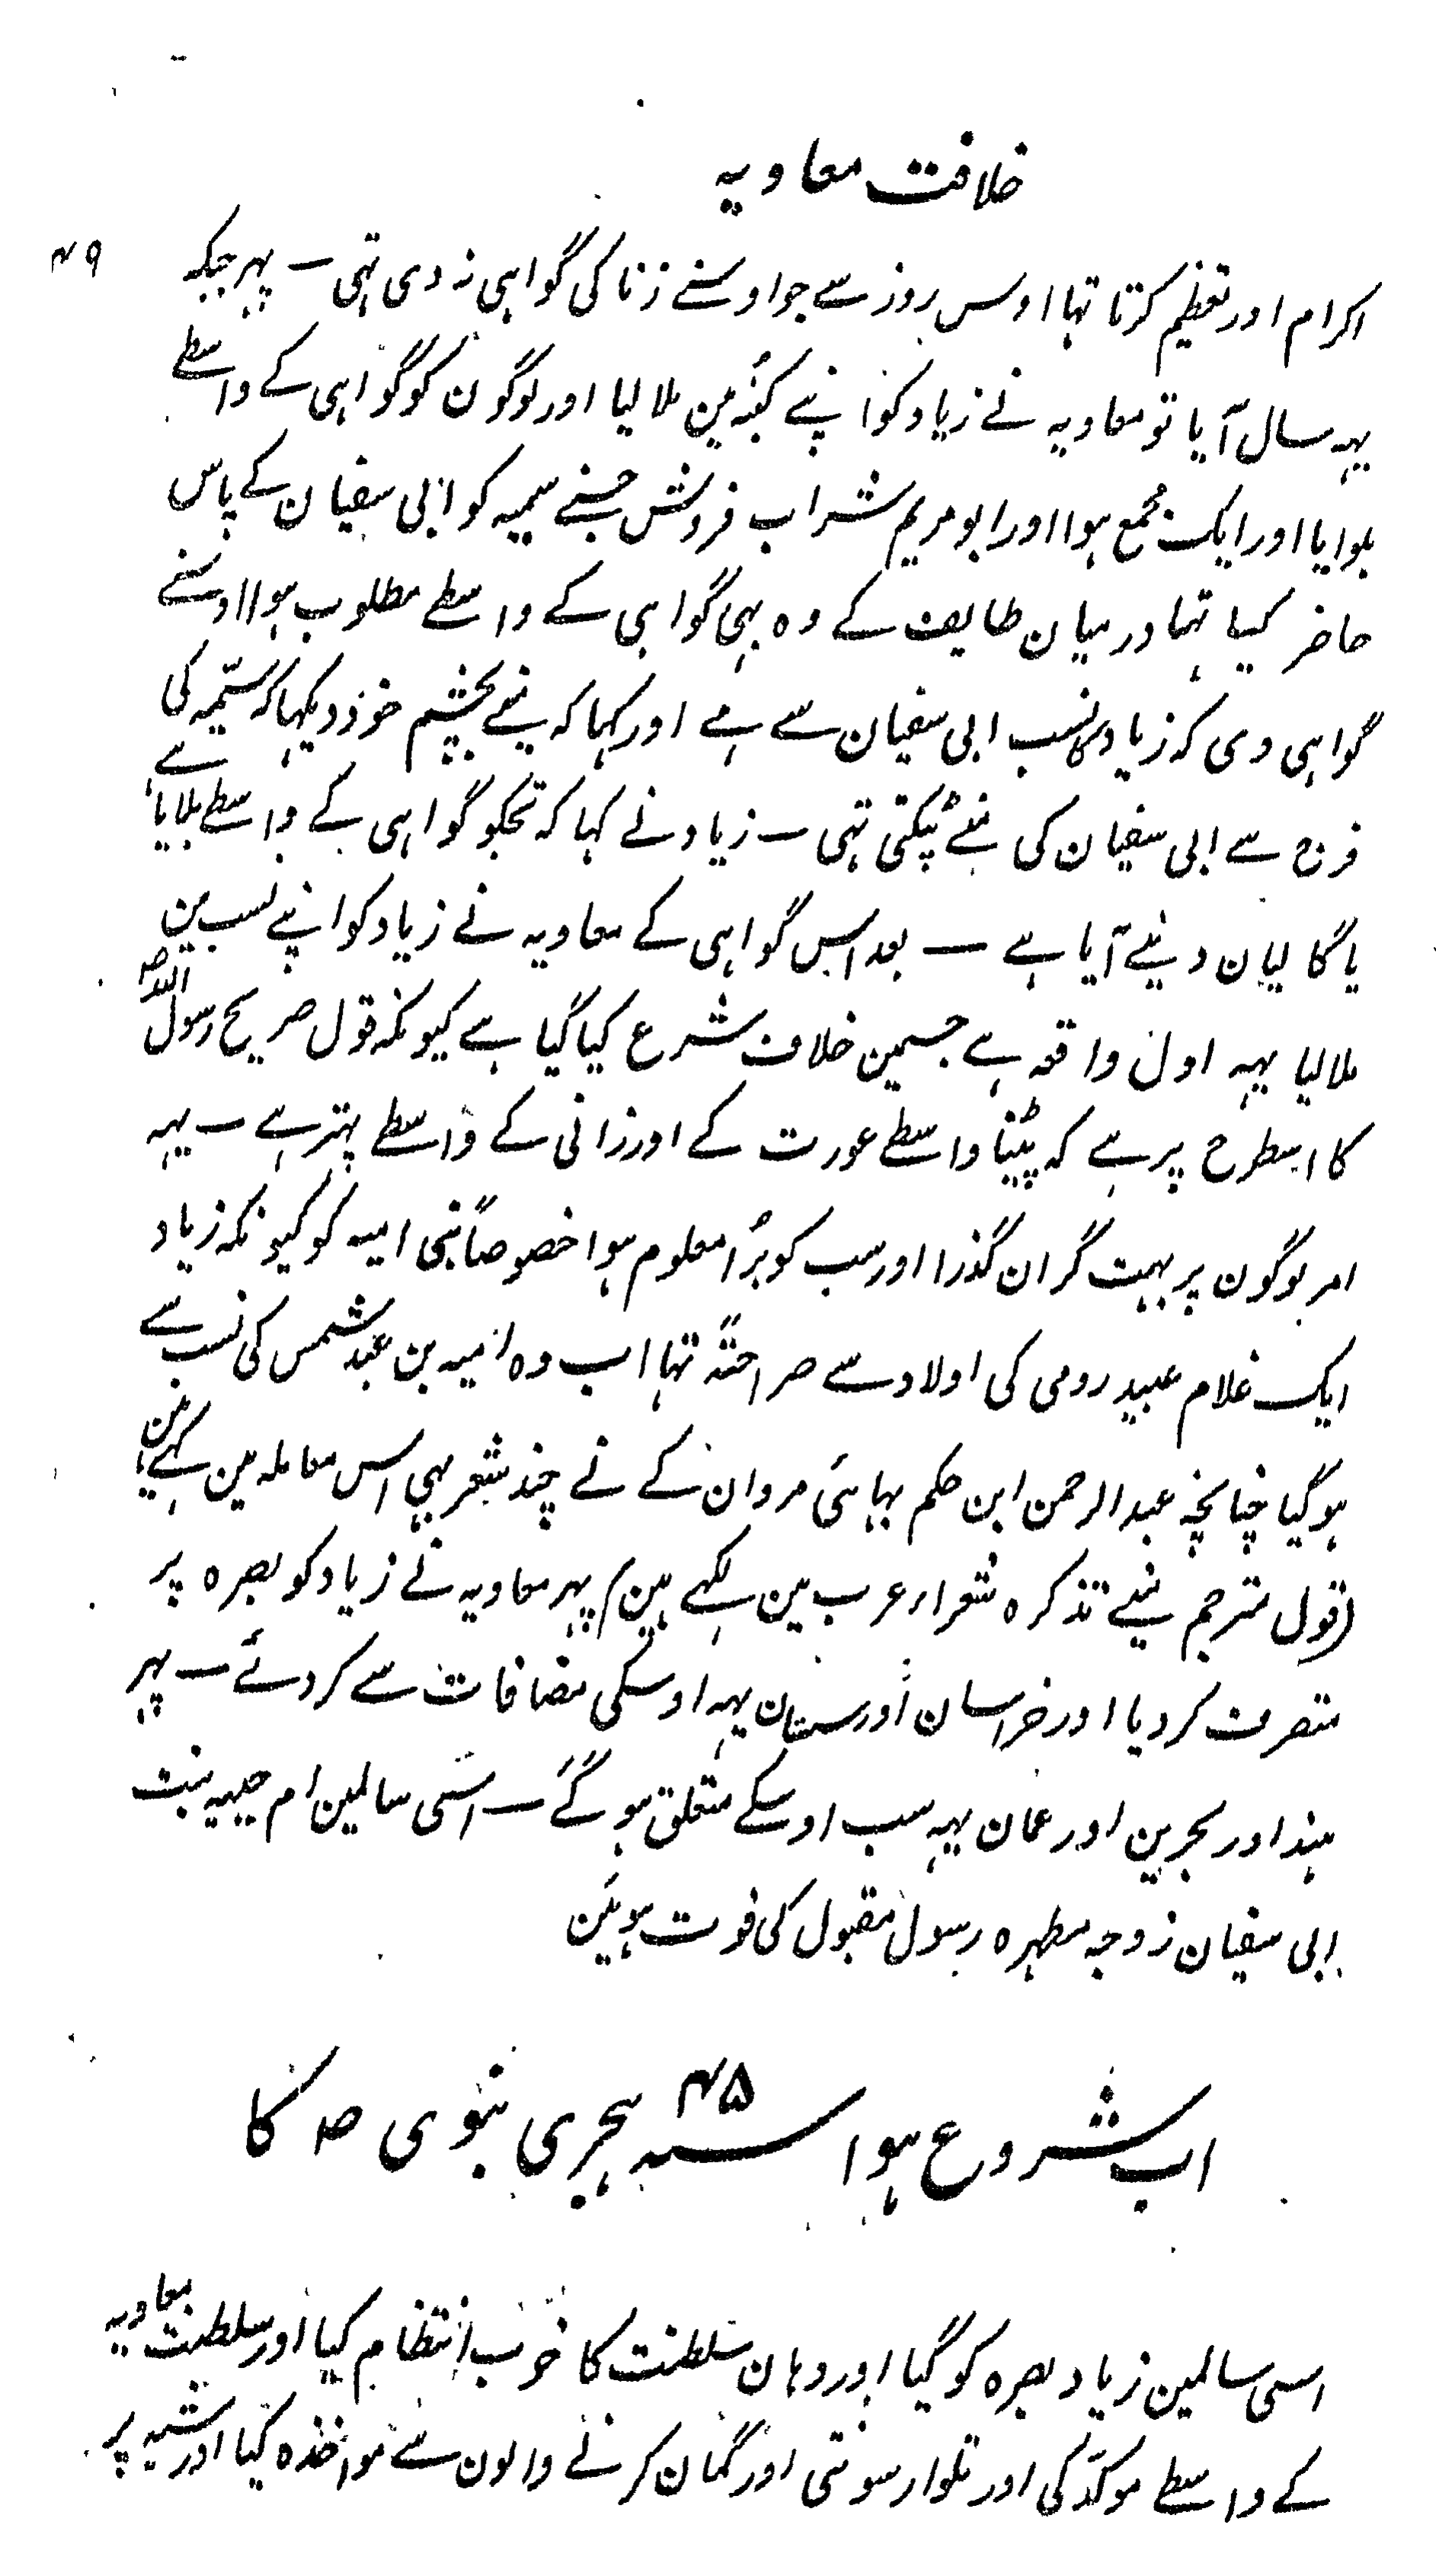 خلافت معاویہ
۴۹
اکرام اور تعظیم کرتا تہا اوس روز سے جو اوسنے زنا کی گواہی نہ دی تہی ۔ پہر جبکہ
یہہ سال آیا تو معاویہ نے زیاد کو اپنے کنبہ مین ملا لیا اور لوگون کو گواہی کے واسطے
بلوایا اور ایک مجمع ہوا اور ابو مریم شراب فروش جسنے سمیہ کو ابی سفیان کے پاس
حاضر کیا تہا درمیان طایف کے وہ بہی گواہی کے واسطے مطلوب ہوا اوسنے
گواہی دی کہ زیاد کا نسب ابی سفیان سے ہے اور کہا کہ مینے بچشم خود دیکہا کہ سمّیہ کی
فرج سے ابی سفیان کی منے ٹپکتی تہی ۔ زیاد نے کہا کہ تجکو گواہی کے واسطے بلایا ہے
یا گالیان دینے آیا ہے ۔ بعد اس گواہی کے معاویہ نے زیاد کو اپنے نسب مین
ملا لیا یہہ اول واقعہ ہے جسمین خلاف شرع کیا گیا ہے کیونکہ قول صریح رسول اللہ ص
کا اسطرح پر ہے کہ بیٹا واسطے عورت کے اور زانی کے واسطے پتہر ہے ۔ یہہ
امر لوگون پر بہت گران گذرا اور سب کو بُرا معلوم ہوا خصوصاً بنی امیہ کو کیونکہ زیاد
ایک غلام عبید رومی کی اولاد سے صراحتہً تہا اب وہ امیہ بن عبد شمس کی نسب سے
ہوگیا چنانچہ عبد الرحمن ابن حکم بہائی مروان کے نے چند شعر بہی اس معاملہ مین کہے ہین
(قول مترجم مینے تذکرہ شعراء عرب مین لکہے ہین) پہر معاویہ نے زیاد کو بصرہ پر
متصرف کردیا اور خراسان اور سستان یہہ اوسکی مضافات سے کردئے ۔ پہر
ہند اور بحرین اور عمان یہہ سب اوسکے متعلق ہوگئے ۔ اسی سالمین ام حبیبہ بنت
ابی سفیان زوجہ مطہرہ رسول مقبول کی فوت ہوئین
اب شروع ہوا سنہ ۴۵ ہجری نبوی ص کا
اسی سالمین زیاد بصرہ کو گیا اور وہان سلطنت کا خوب انتظام کیا اور سلطنت معاویہ
کے واسطے موکدّ کی اور تلوار سونتی اور گمان کرنے والون سے مواخذہ کیا اور شبہ پر